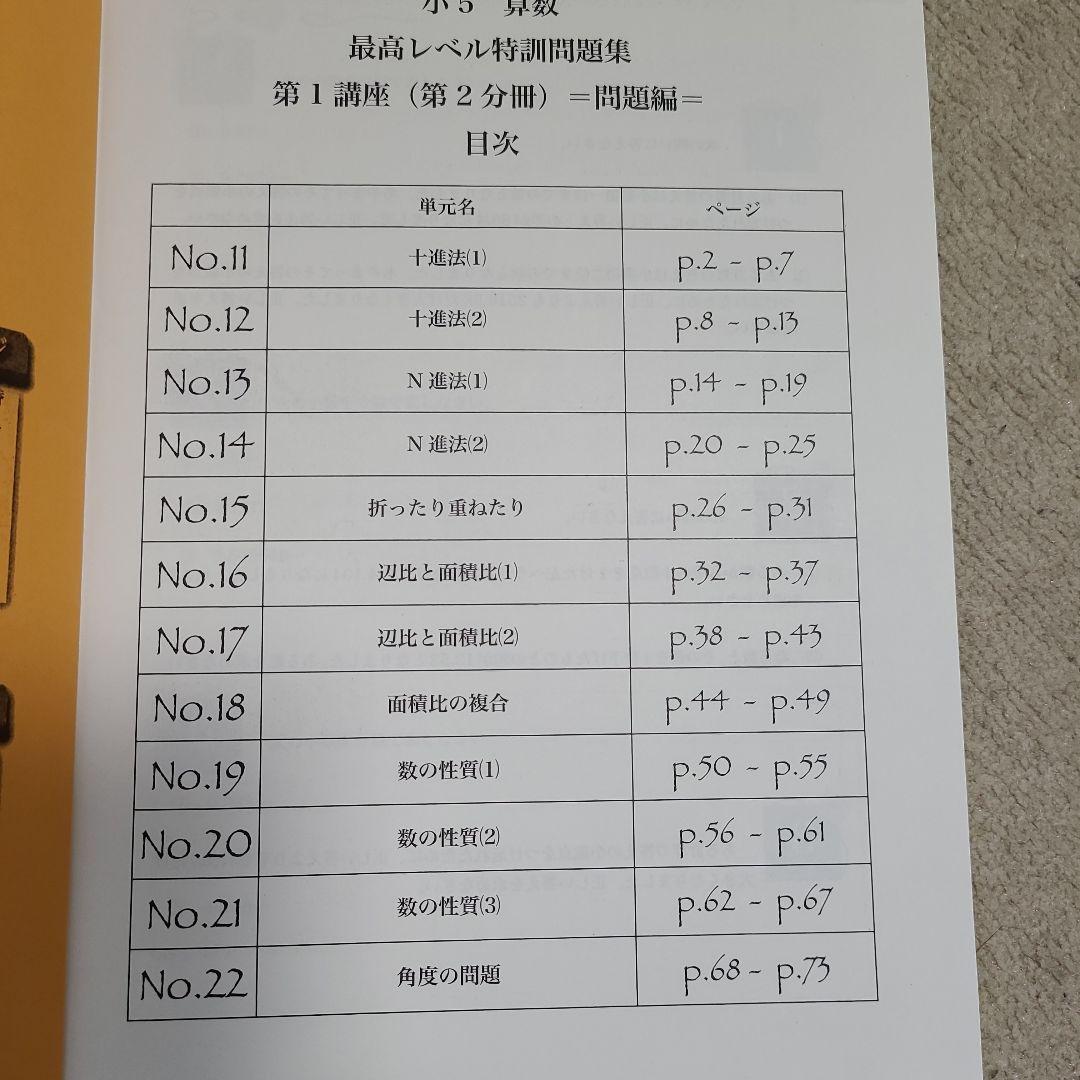 小5 算数
最高レベル特訓問題集
第1講座（第2分冊）＝問題編＝
目次
単元名 ページ
No.11 十進法(1) p.2 - p.7
No.12 十進法(2) p.8 - p.13
No.13 N進法(1) p.14 - p.19
No.14 N進法(2) p.20 - p.25
No.15 折ったり重ねたり p.26 - p.31
No.16 辺比と面積比(1) p.32 - p.37
No.17 辺比と面積比(2) p.38 - p.43
No.18 面積比の複合 p.44 - p.49
No.19 数の性質(1) p.50 - p.55
No.20 数の性質(2) p.56 - p.61
No.21 数の性質(3) p.62 - p.67
No.22 角度の問題 p.68 - p.73